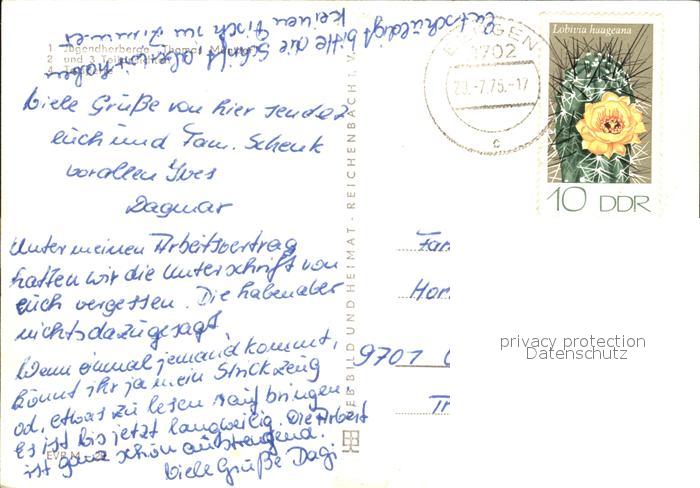 entschüldigt bitte die Schrift aber wir haben
keinen Tisch im Zimmer
1 Jugendherberge "Thomas Müntzer"
2 und 3 Teilansichten
Viele Grüße von hier sendet
euch und Fam. Schenk
vorallen Yves
Dagmar
Unter meinen Arbeitsvertrag
hatten wir die Unterschrift von
euch vergessen. Die haben aber
nichts dazu gesagt.
Wenn einmal jemand kommt,
könnt ihr ja mein Strickzeug
od. etwas zu lesen rauf bringen.
Es ist bis jetzt langweilig. Die Arbeit
ist ganz schön anstrengend.
Viele Grüße Dagi
BILD UND HEIMAT · REICHENBACH I. V.
1702
23.-7.75.-17
c
Lobivia haageana
10 DDR
Fam
Hor
9701
privacy protection
Datenschutz